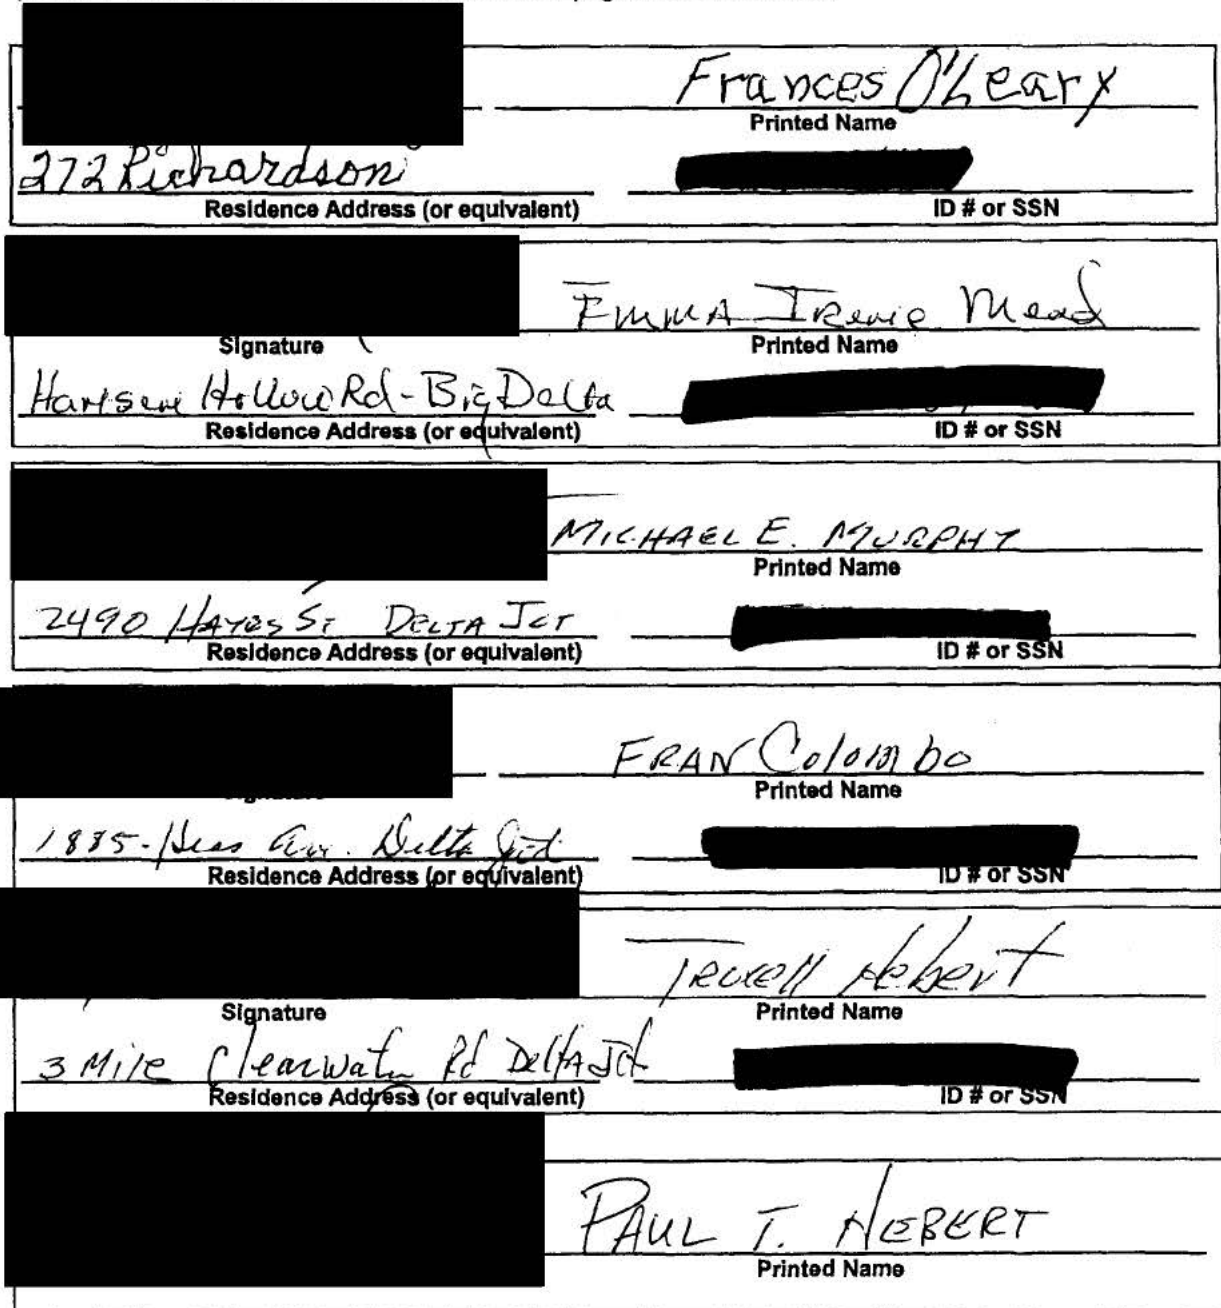 Frances O'Leary
Printed Name
272 Richardson
Residence Address (or equivalent) ID # or SSN
Emma Irenie Mead
Signature Printed Name
Hollow Rd - Big Delta
Residence Address (or equivalent) ID # or SSN
MICHAEL E. MURPHY
Printed Name
2490 HAYES ST DELTA JCT
Residence Address (or equivalent) ID # or SSN
FRAN Colombo
Printed Name
1885 - Hess Av. Delta Jct
Residence Address (or equivalent) ID # or SSN
Hebert
Signature Printed Name
3 Mile Clearwater Rd Delta Jct
Residence Address (or equivalent) ID # or SSN
PAUL T. HEBERT
Printed Name